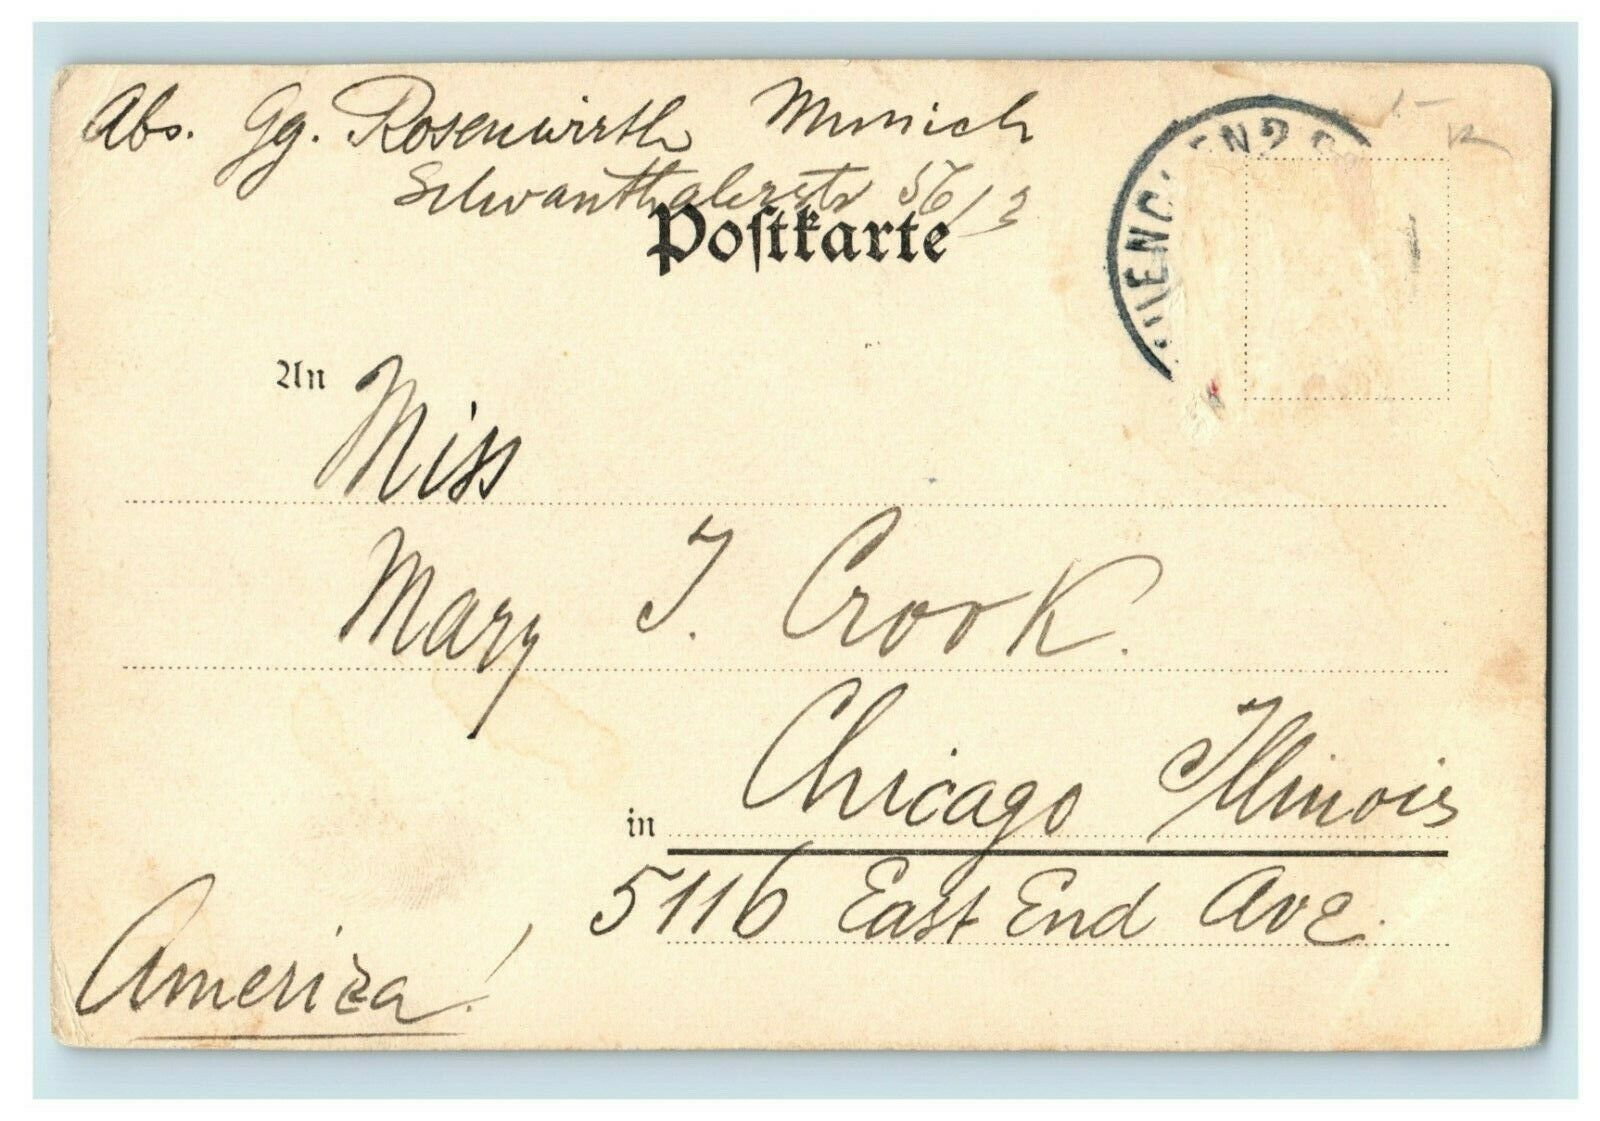 Abs. Gg. Rosenwirth Munich
Schwanthalerstr 56/3
Postkarte
An Miss
Mary T. Crook.
in Chicago Illinois
5116 East End Ave.
America!